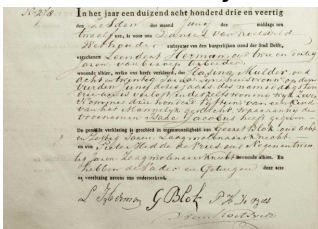 In het jaar een duizend acht honderd drie en veertig
den achsten der maand Junij des middags ten
twaalf ure, is voor ons Daniel van
Wethouder ambtenaar van den burgerlijken stand der Stad Delft,
verschenen Leendert Herman oud drie en dertig
jaren van beroep
wonende alhier, welke ons heeft verklaard, dat Mulder oud
acht en twintig jaren zijne huisvrouw op den
vierden Junij dezes jaars des namiddags ten
drie ure is verlost in des zelfs woning Wyk
Nommer drie honderd vijftien van een kind
van het Mannelijk geslacht, hetwelk
voornamen Jacobus heeft gegeven
De gemelde verklaring is geschied in tegenwoordigheid van Gerret Blok oud acht
en veertig Jaren Zaagmolenaarsknecht
en van Pieter Hedde de Vries oud Negenentwin
tig jaren Zaagmolenaarsknecht wonende alhier. En
hebben de Vader en Getuigen deze acte
na voorlezing nevens ons onderteekend.
L Herman G Blok P. H. de Vries